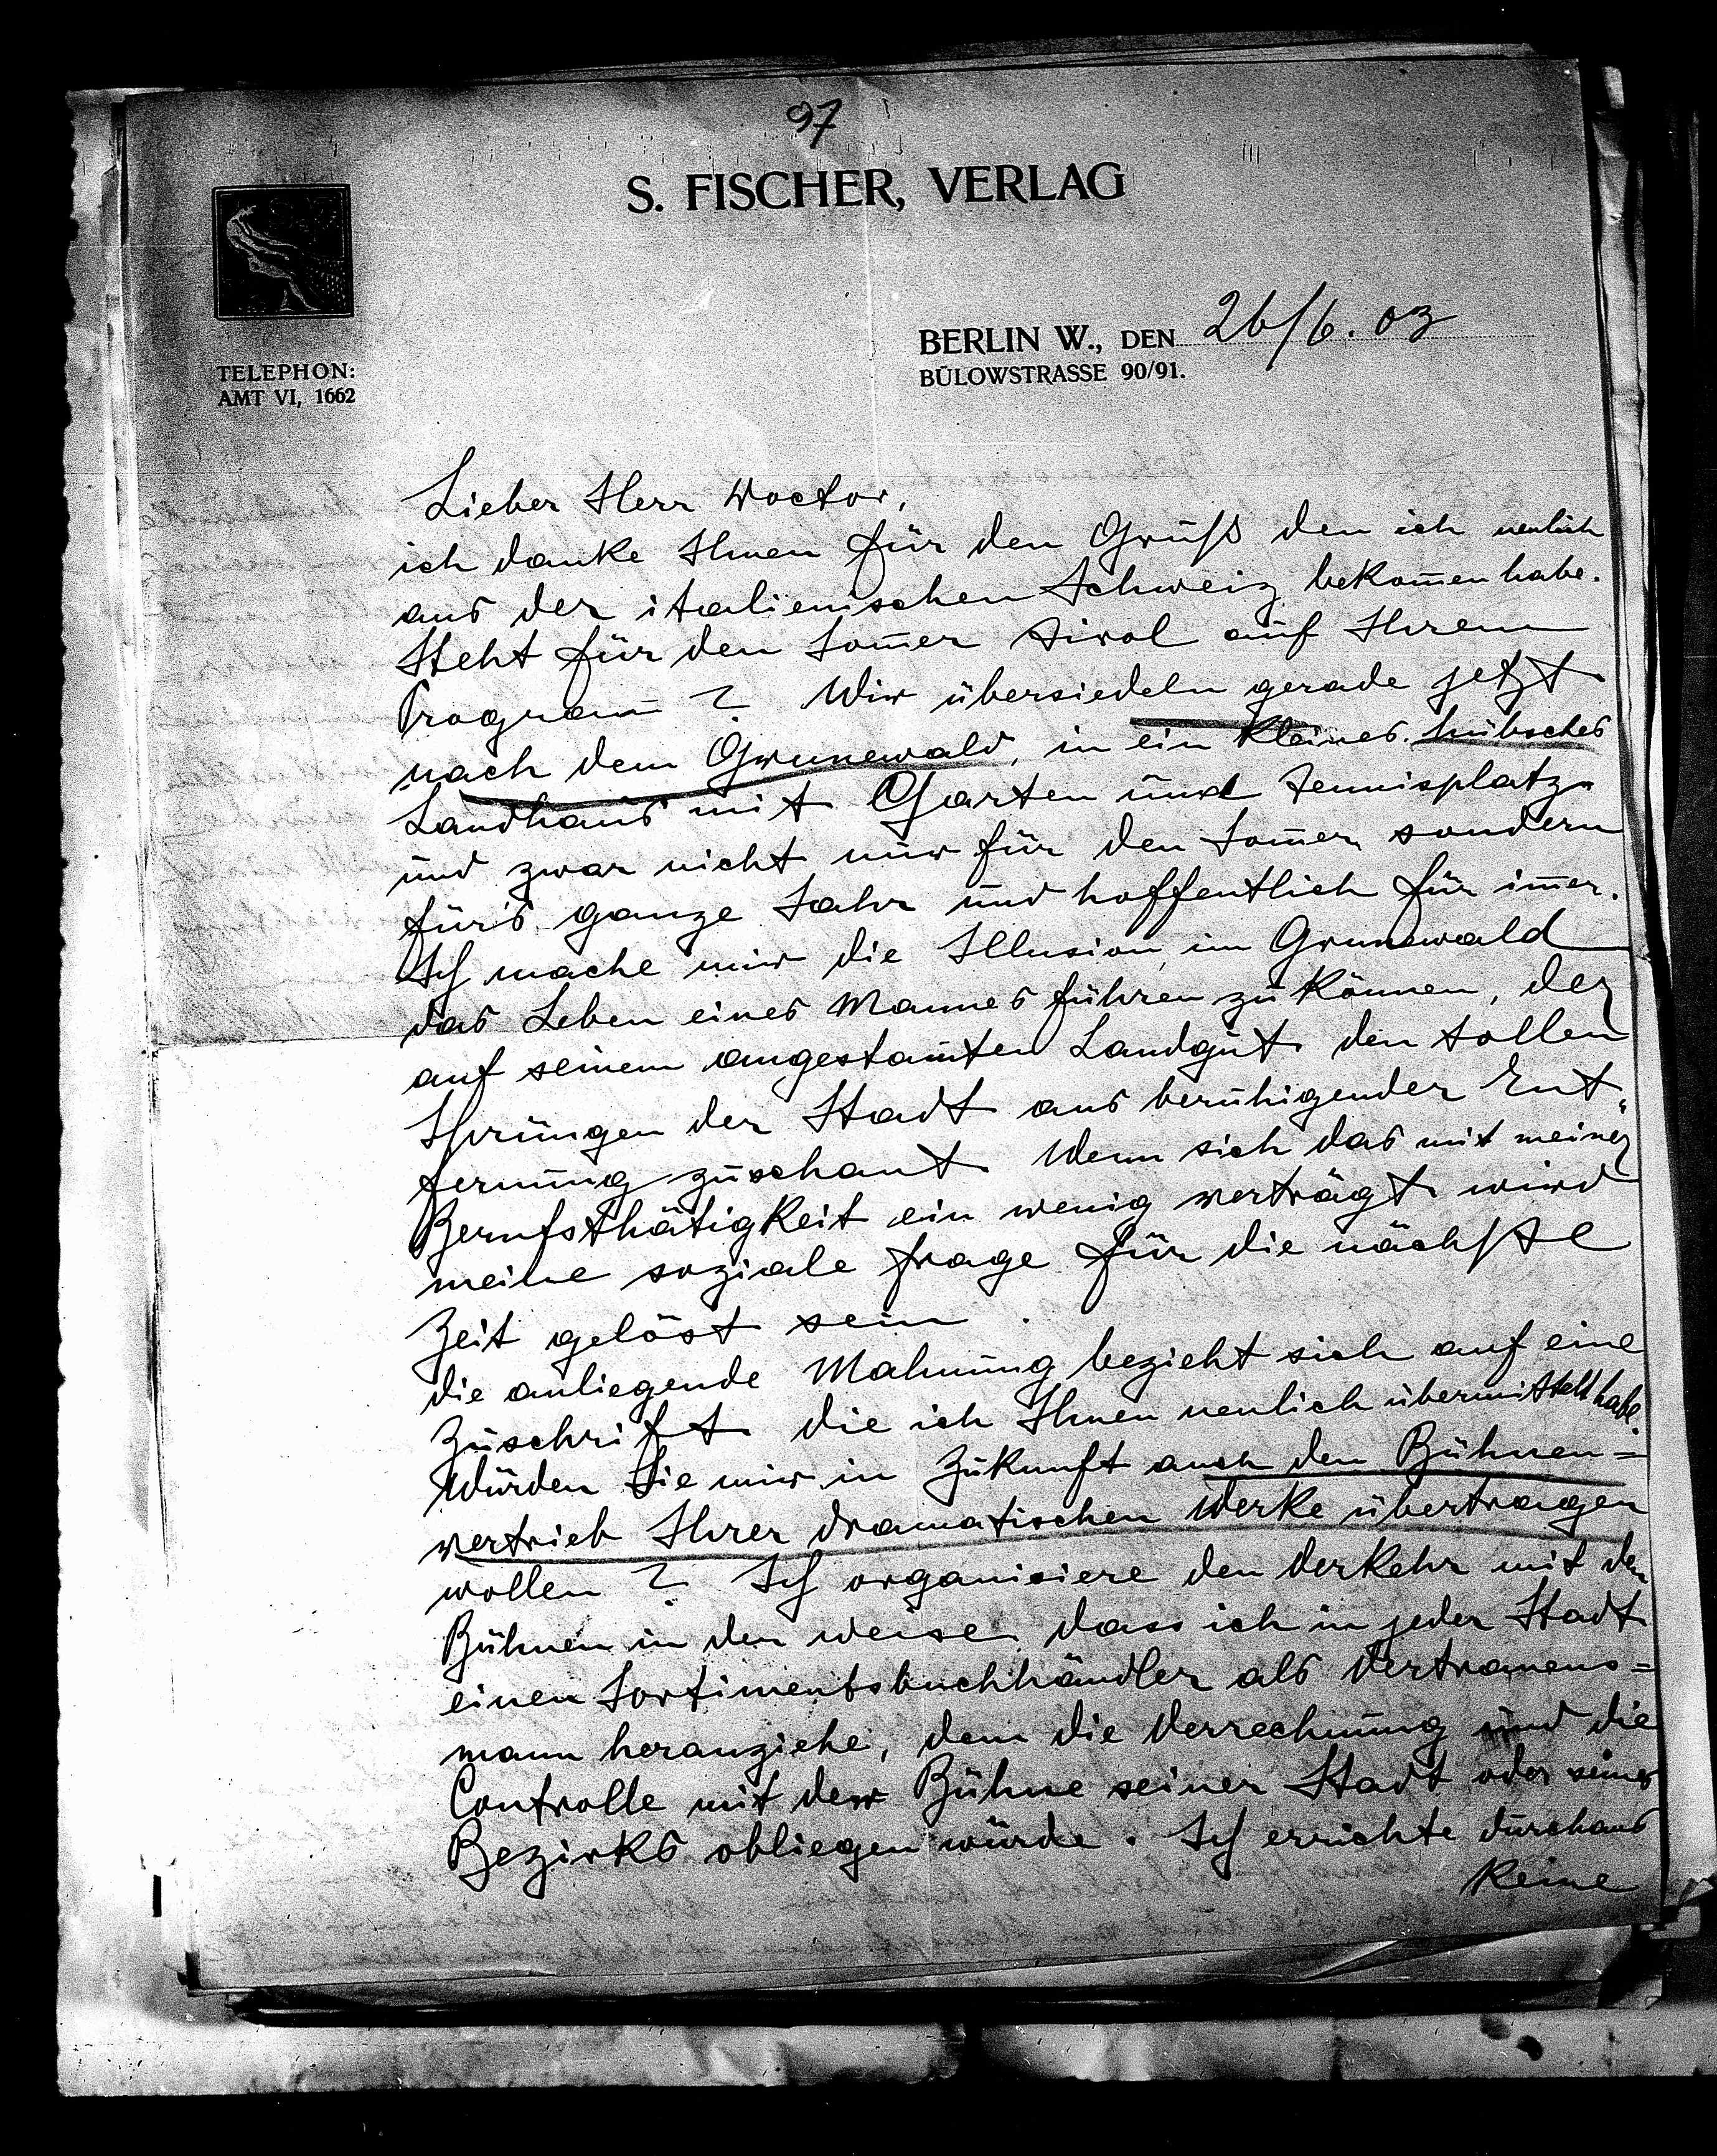 97
S. FISCHER, VERLAG
TELEPHON:
AMT VI, 1662
BERLIN W., DEN 26/6. 03
BÜLOWSTRASSE 90/91.
Lieber Herr Doctor,
ich danke Ihnen für den Gruß den ich neulich
aus der italienischen Schweiz bekom̄en habe.
Steht für den Som̄er Tirol auf Ihrem
Program̄ ? Wir übersiedeln gerade jetzt
nach dem Grunewald, in ein kleines hübsches
Landhaus mit Garten und Tennisplatz
und zwar nicht nur für den Som̄er sondern
für's ganze Jahr und hoffentlich für im̄er.
Ich mache mir die Illusion, im Grunewald
das Leben eines Mannes führen zu können, der
auf seinem angestam̄ten Landgut den tollen
Sprüngen der Stadt aus beruhigender Ent-
fernung zuschaut. Wenn sich das mit meiner
Berufsthätigkeit ein wenig verträgt wird
meine soziale Frage für die nächste
Zeit gelöst sein.
Die anliegende Mahnung bezieht sich auf eine
Zuschrift die ich Ihnen neulich übermittelt habe.
Würden Sie mir in Zukunft auch den Bühnen=
vertrieb Ihrer dramatischen Werke übertragen
wollen ? Ich organisiere den Verkehr mit den
Bühnen in der Weise dass ich in jeder Stadt
einen Sortimentsbuchhändler als Vertrauens=
mann heranziehe, dem die Verrechnung und die
Controlle mit der Bühne seiner Stadt oder seines
Bezirks obliegen würde. Ich errichte durchaus
keine